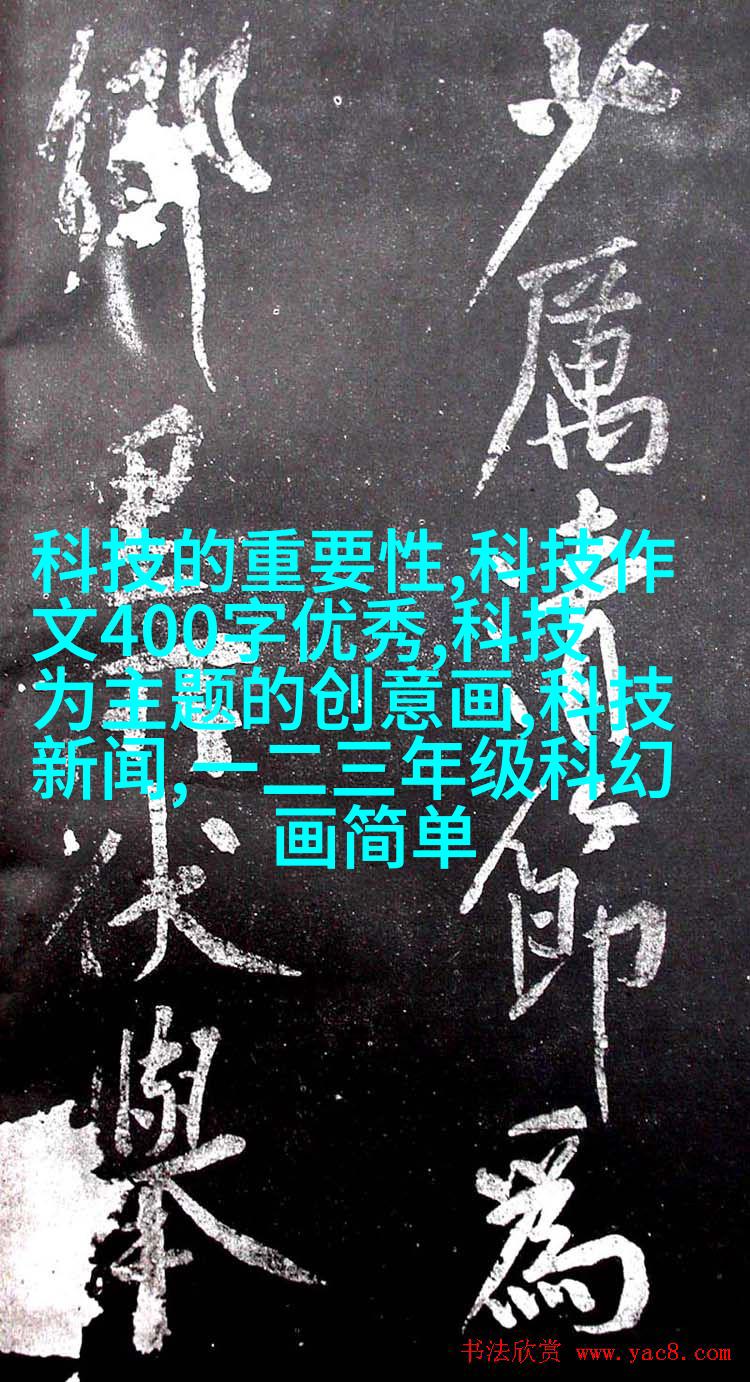 少厲清節為
鄉里所伏舉
科技的重要性,科技作
文400字优秀,科技
为主题的创意画,科技
新闻,一二三年级科幻
画简单
书法欣赏 www.yac8.com